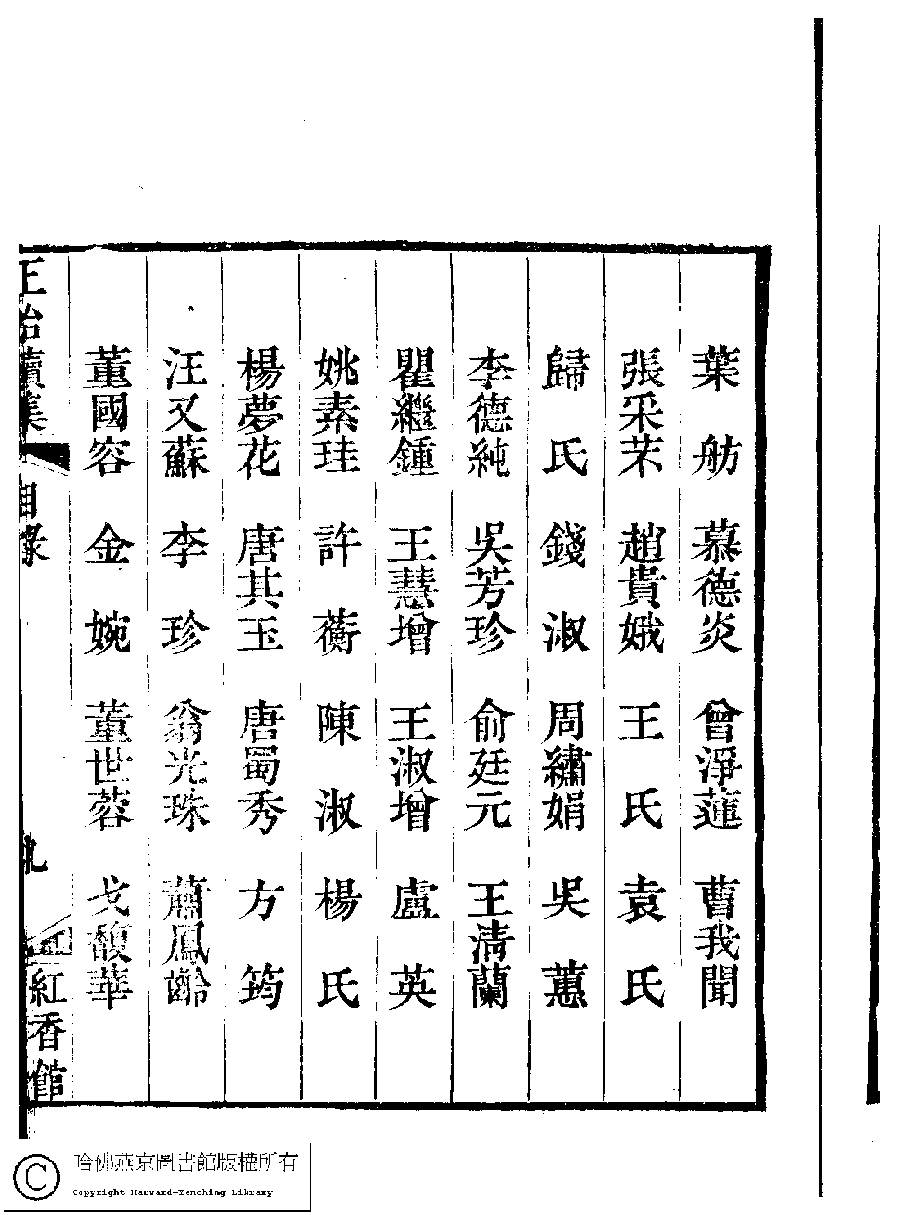 葉舫　慕德炎　曾淨蓮　曹我聞
張采茮　趙貴娥　王氏　袁氏
歸氏　錢淑　周繡娟　吳蕙
李德純　吳芳珍　俞廷元　王清蘭
瞿繼鍾　王慧增　王淑增　盧英
姚素珪　許蘅　陳淑　楊氏
楊夢花　唐其玉　唐蜀秀　方筠
汪又蘇　李珍　翁光珠　蕭鳳齡
董國容　金婉　董世蓉　戈馥華
續集　目錄　九　紅香館
哈佛燕京圖書館版權所有
Copyright Harvard-Yenching Library